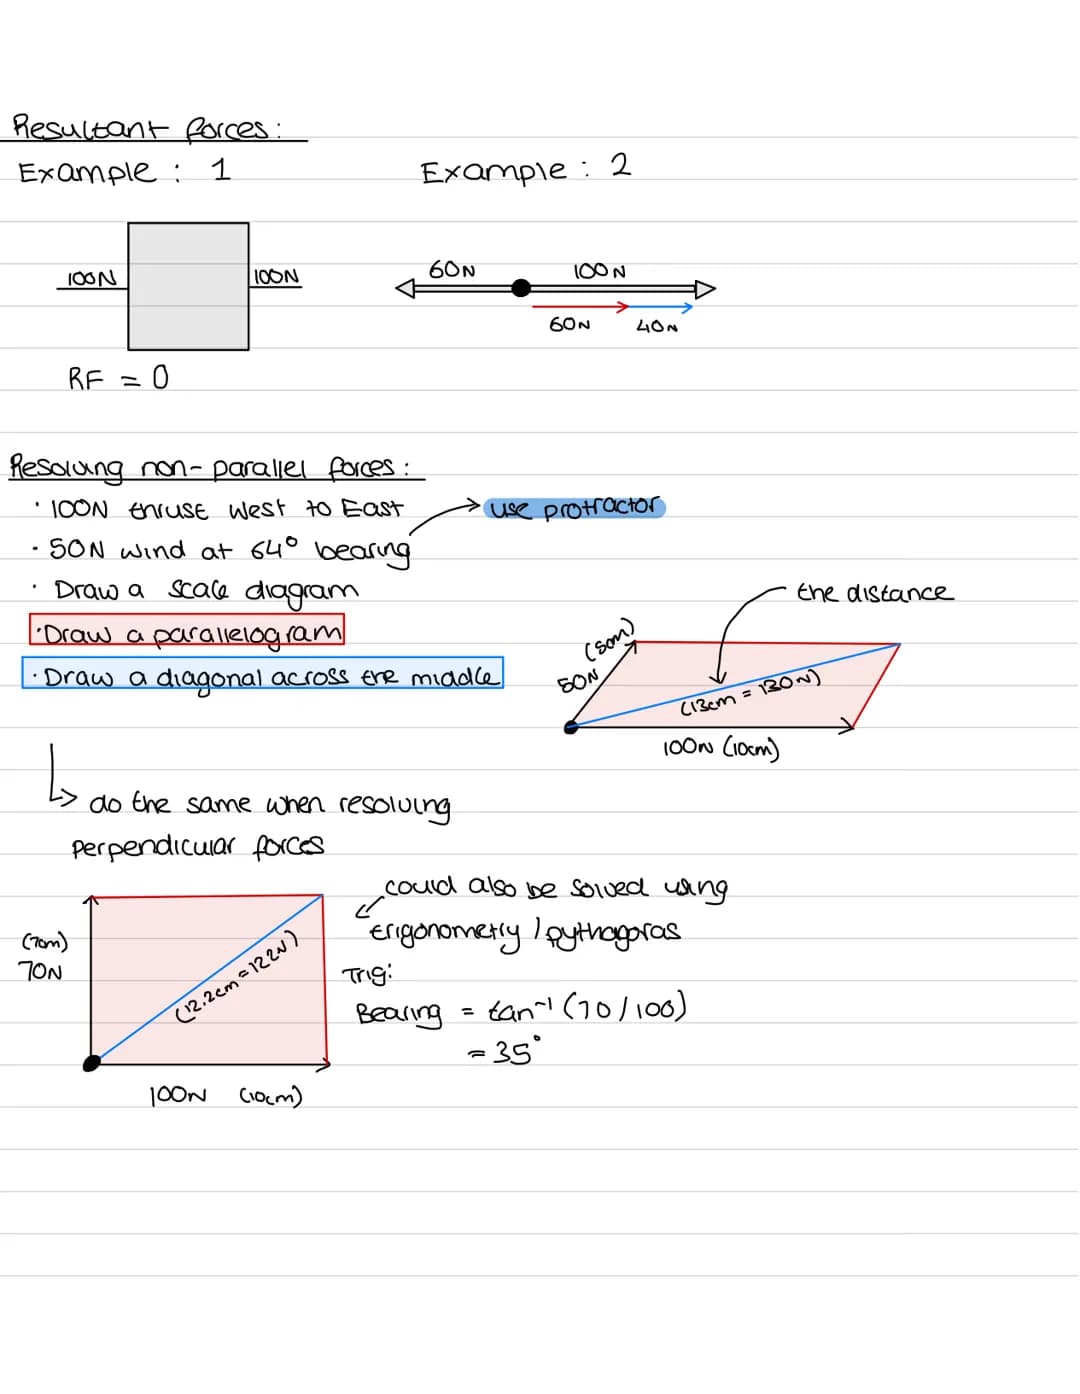 Resultant forces:
Example : 1
Example : 2
100N
100N
60N
100N
60N
40N
RF = 0
Resolving non-parallel forces:
· 100N thrust West to East
use protractor
· 50N wind at 64° bearing
· Draw a scale diagram
the distance
· Draw a parallelogram
· Draw a diagonal across the middle
(5cm)
50N
(13cm = 130N)
100N (10cm)
do the same when resolving
perpendicular forces
could also be solved using
trigonometry / pythagoras
(7cm)
70N
(12.2cm = 122N)
Trig:
Bearing = tan⁻¹ (70/100)
= 35°
100N (10cm)